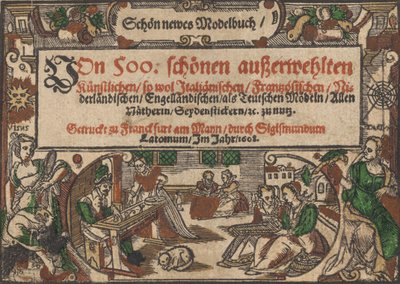 Schön newes Modelbuch /
VOn 500. schönen außerwehlten
Künstlichen / so wol Italiänischen / Frantzösischen / Ni-
derländischen / Engelländischen / als Teutschen Mödeln / Allen
Näherin / Seydenstickern / ꝛc. zu nutz.
Getruckt zu Franckfurt am Mayn / durch Sigismundum
Latomum / Im Jahr / 1608.